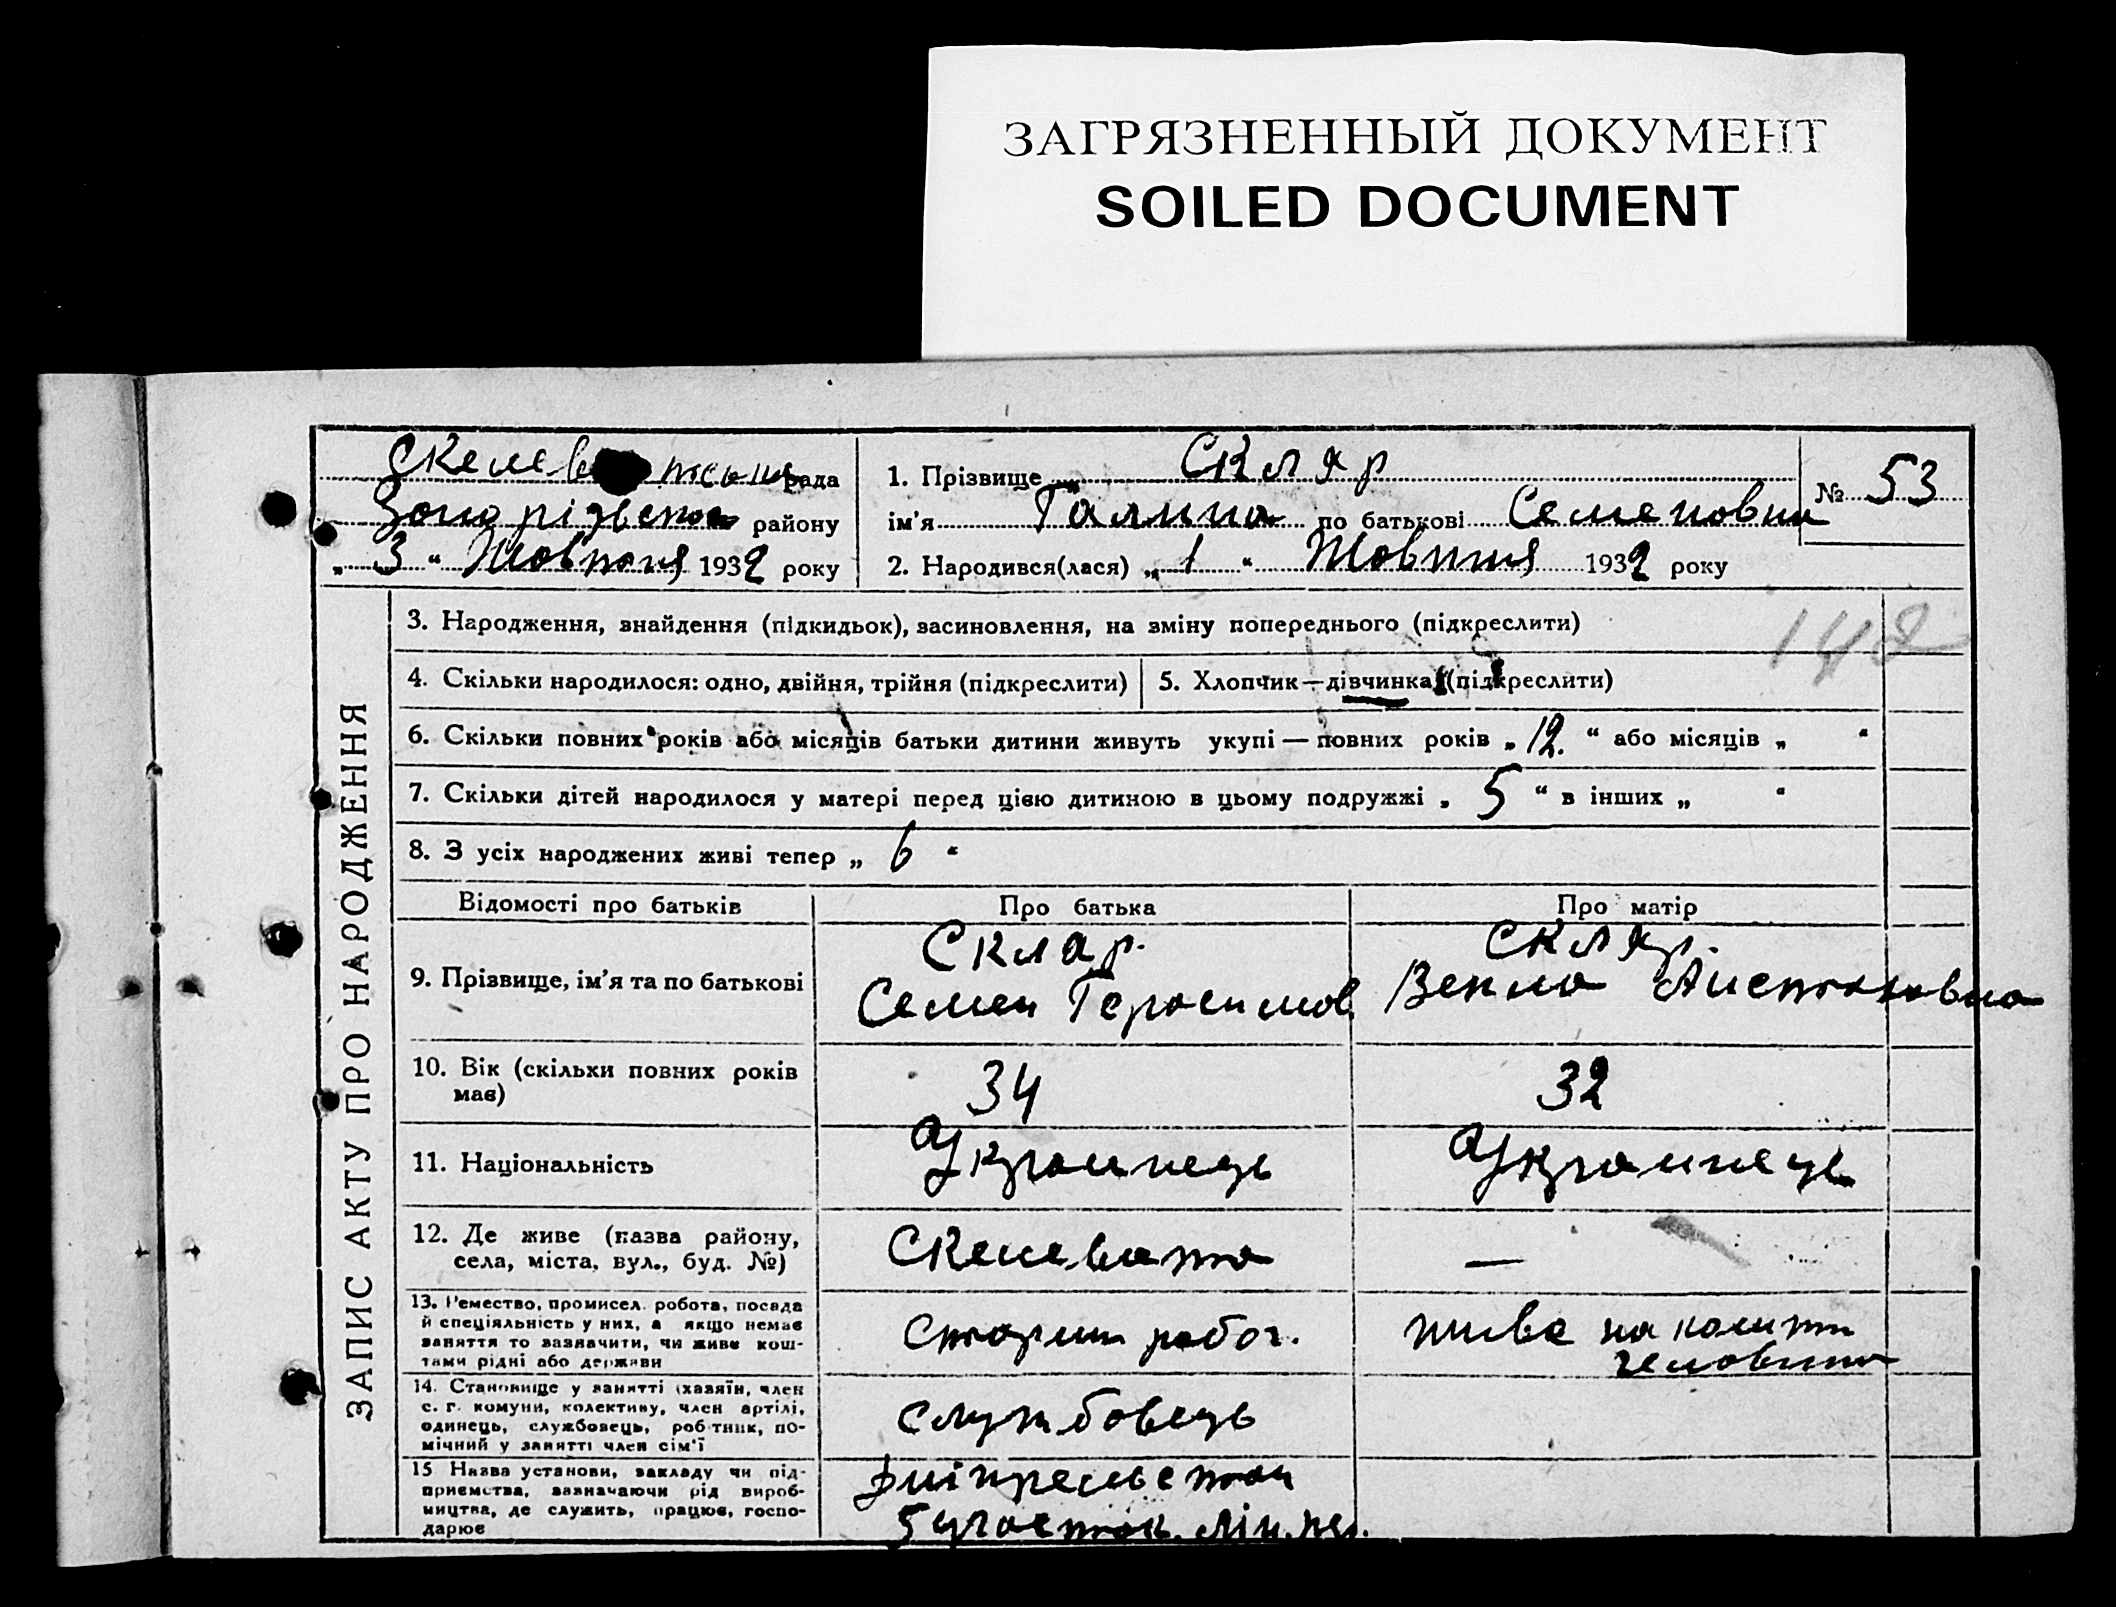 ЗАГРЯЗНЕННЫЙ ДОКУМЕНТ
SOILED DOCUMENT
рада
району
„ 3 “ Жовтня 1932 року
1. Прізвище Скляр
ім’я Галина по батькові Семеновна
№ 53
2. Народився(лася) „ 1 “ Жовтня 1932 року
142
ЗАПИС АКТУ ПРО НАРОДЖЕННЯ
3. Народження, знайдення (підкидьок), засиновлення, на зміну попереднього (підкреслити)
4. Скільки народилося: одно, двійня, трійня (підкреслити)
5. Хлопчик—дівчинка (підкреслити)
6. Скільки повних років або місяців батьки дитини живуть укупі — повних років „ 12. “ або місяців „ “
7. Скільки дітей народилося у матері перед цією дитиною в цьому подружжі „ 5 “ в інших „ “
8. З усіх народжених живі тепер „ 6 “
Відомості про батьків
Про батька
Про матір
9. Прізвище, ім’я та по батькові
Скляр.
Семен Герасимов.
Скляр.
10. Вік (скільхи повних років
має)
34
32
11. Національність
Украинець
Украинець
12. Де живе (назва району,
села, міста, вул., буд. №)
Скелевата
—
13. Ремество, промисел. робота, посада
й спеціяльність у них, а якщо немає
заняття то зазначити, чи живе кош-
тами рідні або держави
Старши робоч.
живе на кошти
человика
14. Становище у занятті (хазяїн, член
с. г. комуни, колективу, член артілі,
одинець, службовець, робітник, по-
мічний у занятті член сім’ї
службовець
15 Назва установи, закладу чи під-
приємства, зазначаючи рід вироб-
ництва, де служить, працює, госпо-
дарює
5 участок